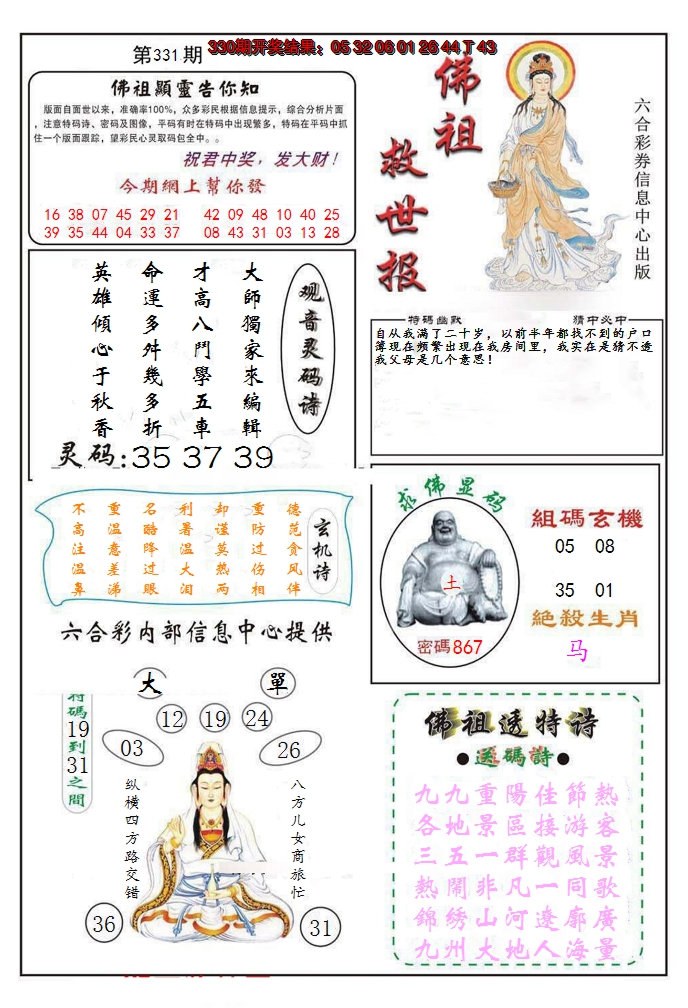 第331期
330期开奖结果：05 32 06 01 26 44 T 43
佛祖顯靈告你知
版面自面世以来，准确率100%，众多彩民根据信息提示，综合分析片面
，注意特码诗、密码及图像，平码有时在特码中出现繁多，特码在平码中抓
住一个版面跟踪，望彩民心灵取码包全中。。
祝君中奖，发大财！
今期網上幫你發
16 38 07 45 29 21 42 09 48 10 40 25
39 35 44 04 33 37 08 43 31 03 13 28
佛祖
救世报
六合彩券信息中心出版
观音灵码诗
大師獨家來編輯
才高八鬥學五車
命運多舛幾多折
英雄傾心于秋香
灵码:35 37 39
特碼幽默
猜中必中
自从我满了二十岁，以前半年都找不到的户口
簿现在频繁出现在我房间里，我实在是猜不透
我父母是几个意思！
玄机诗
德范食风伴
重防过伤相
却谨莫热两
利暑温大泪
名酷降过眼
重温意差涕
不高注温鼻
六合彩内部信息中心提供
求佛显码
土
密碼867
組碼玄機
05 08
35 01
絶殺生肖
马
大
單
特碼19到31之間
12 19 24
03
26
纵横四方路交错
八方儿女商旅忙
36
31
佛祖透特诗
●送碼詩●
九九重陽佳節熱
各地景區接游客
三五一群觀風景
熱鬧非凡一同歌
錦绣山河遼廓廣
九州大地人海量